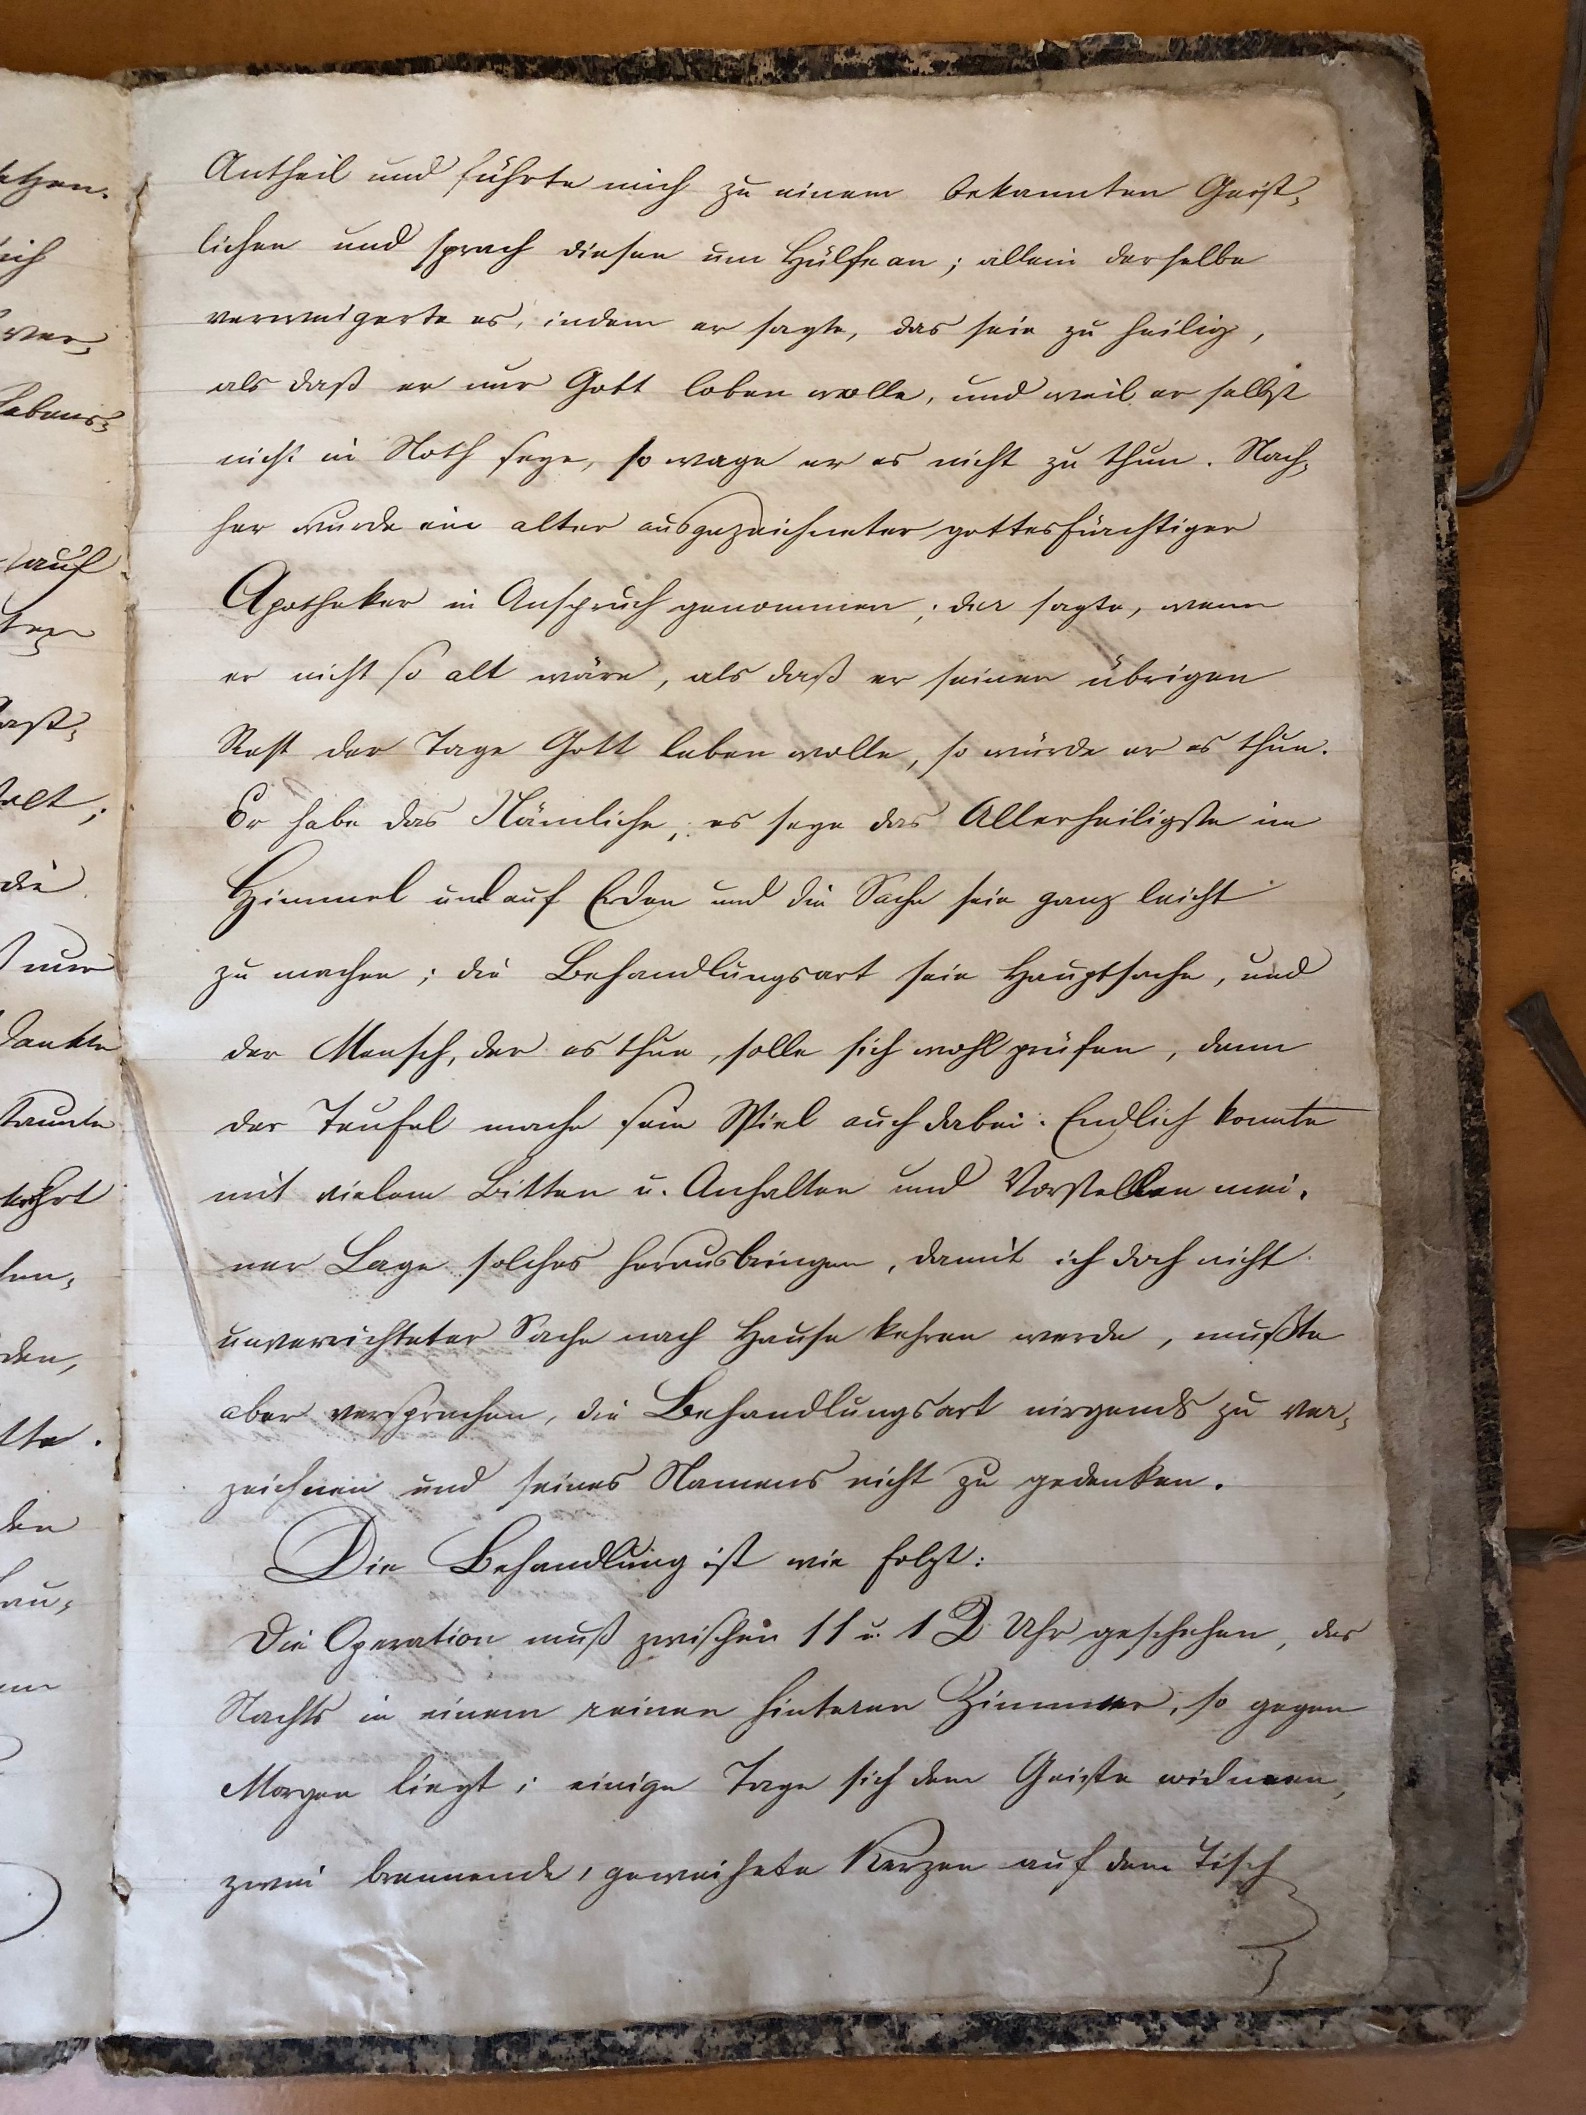 Antheil und führte mich zu einem bekannten Geist-
lichen und sprach diesen um Hülfe an; allein derselbe
verweigerte es, indem er sagte, das seie zu heilig,
als daß er nur Gott loben wolle, und weil er selbst
nicht in Noth seye, so wage er es nicht zu thun. Nach-
her wurde ein alter ausgezeichneter gottesfürchtiger
Apotheker in Anspruch genommen; der sagte, wenn
er nicht so alt wäre, als daß er seinen übrigen
Rest der Tage Gott leben wolle, so würde er es thun.
Er habe das Nämliche, es seye das Allerheiligste im
Himmel und auf Erden und die Sache seie ganz leicht
zu machen; die Behandlungsart seie Hauptsache, und
der Mensch, der es thue, solle sich wohl prüfen, denn
der Teufel mache sein Spiel auch dabei. Endlich konnte
mit vielem Bitten u. Anhalten und Vorstellen mei-
ner Lage solches herausbringen, damit ich doch nicht
unverrichteter Sache nach Hause kehren werde, mußte
aber versprechen, die Behandlungsart nirgends zu ver-
zeichnen und seines Namens nicht zu gedenken.
Die Behandlung ist wie folgt:
Die Operation muß zwischen 11 u. 12 Uhr geschehen, des
Nachts in einem reinen hinteren Zimmer, so gegen
Morgen liegt; einige Tage sich dem Geiste widmen,
zwei brennende, geweihete Kerzen auf dem Tisch